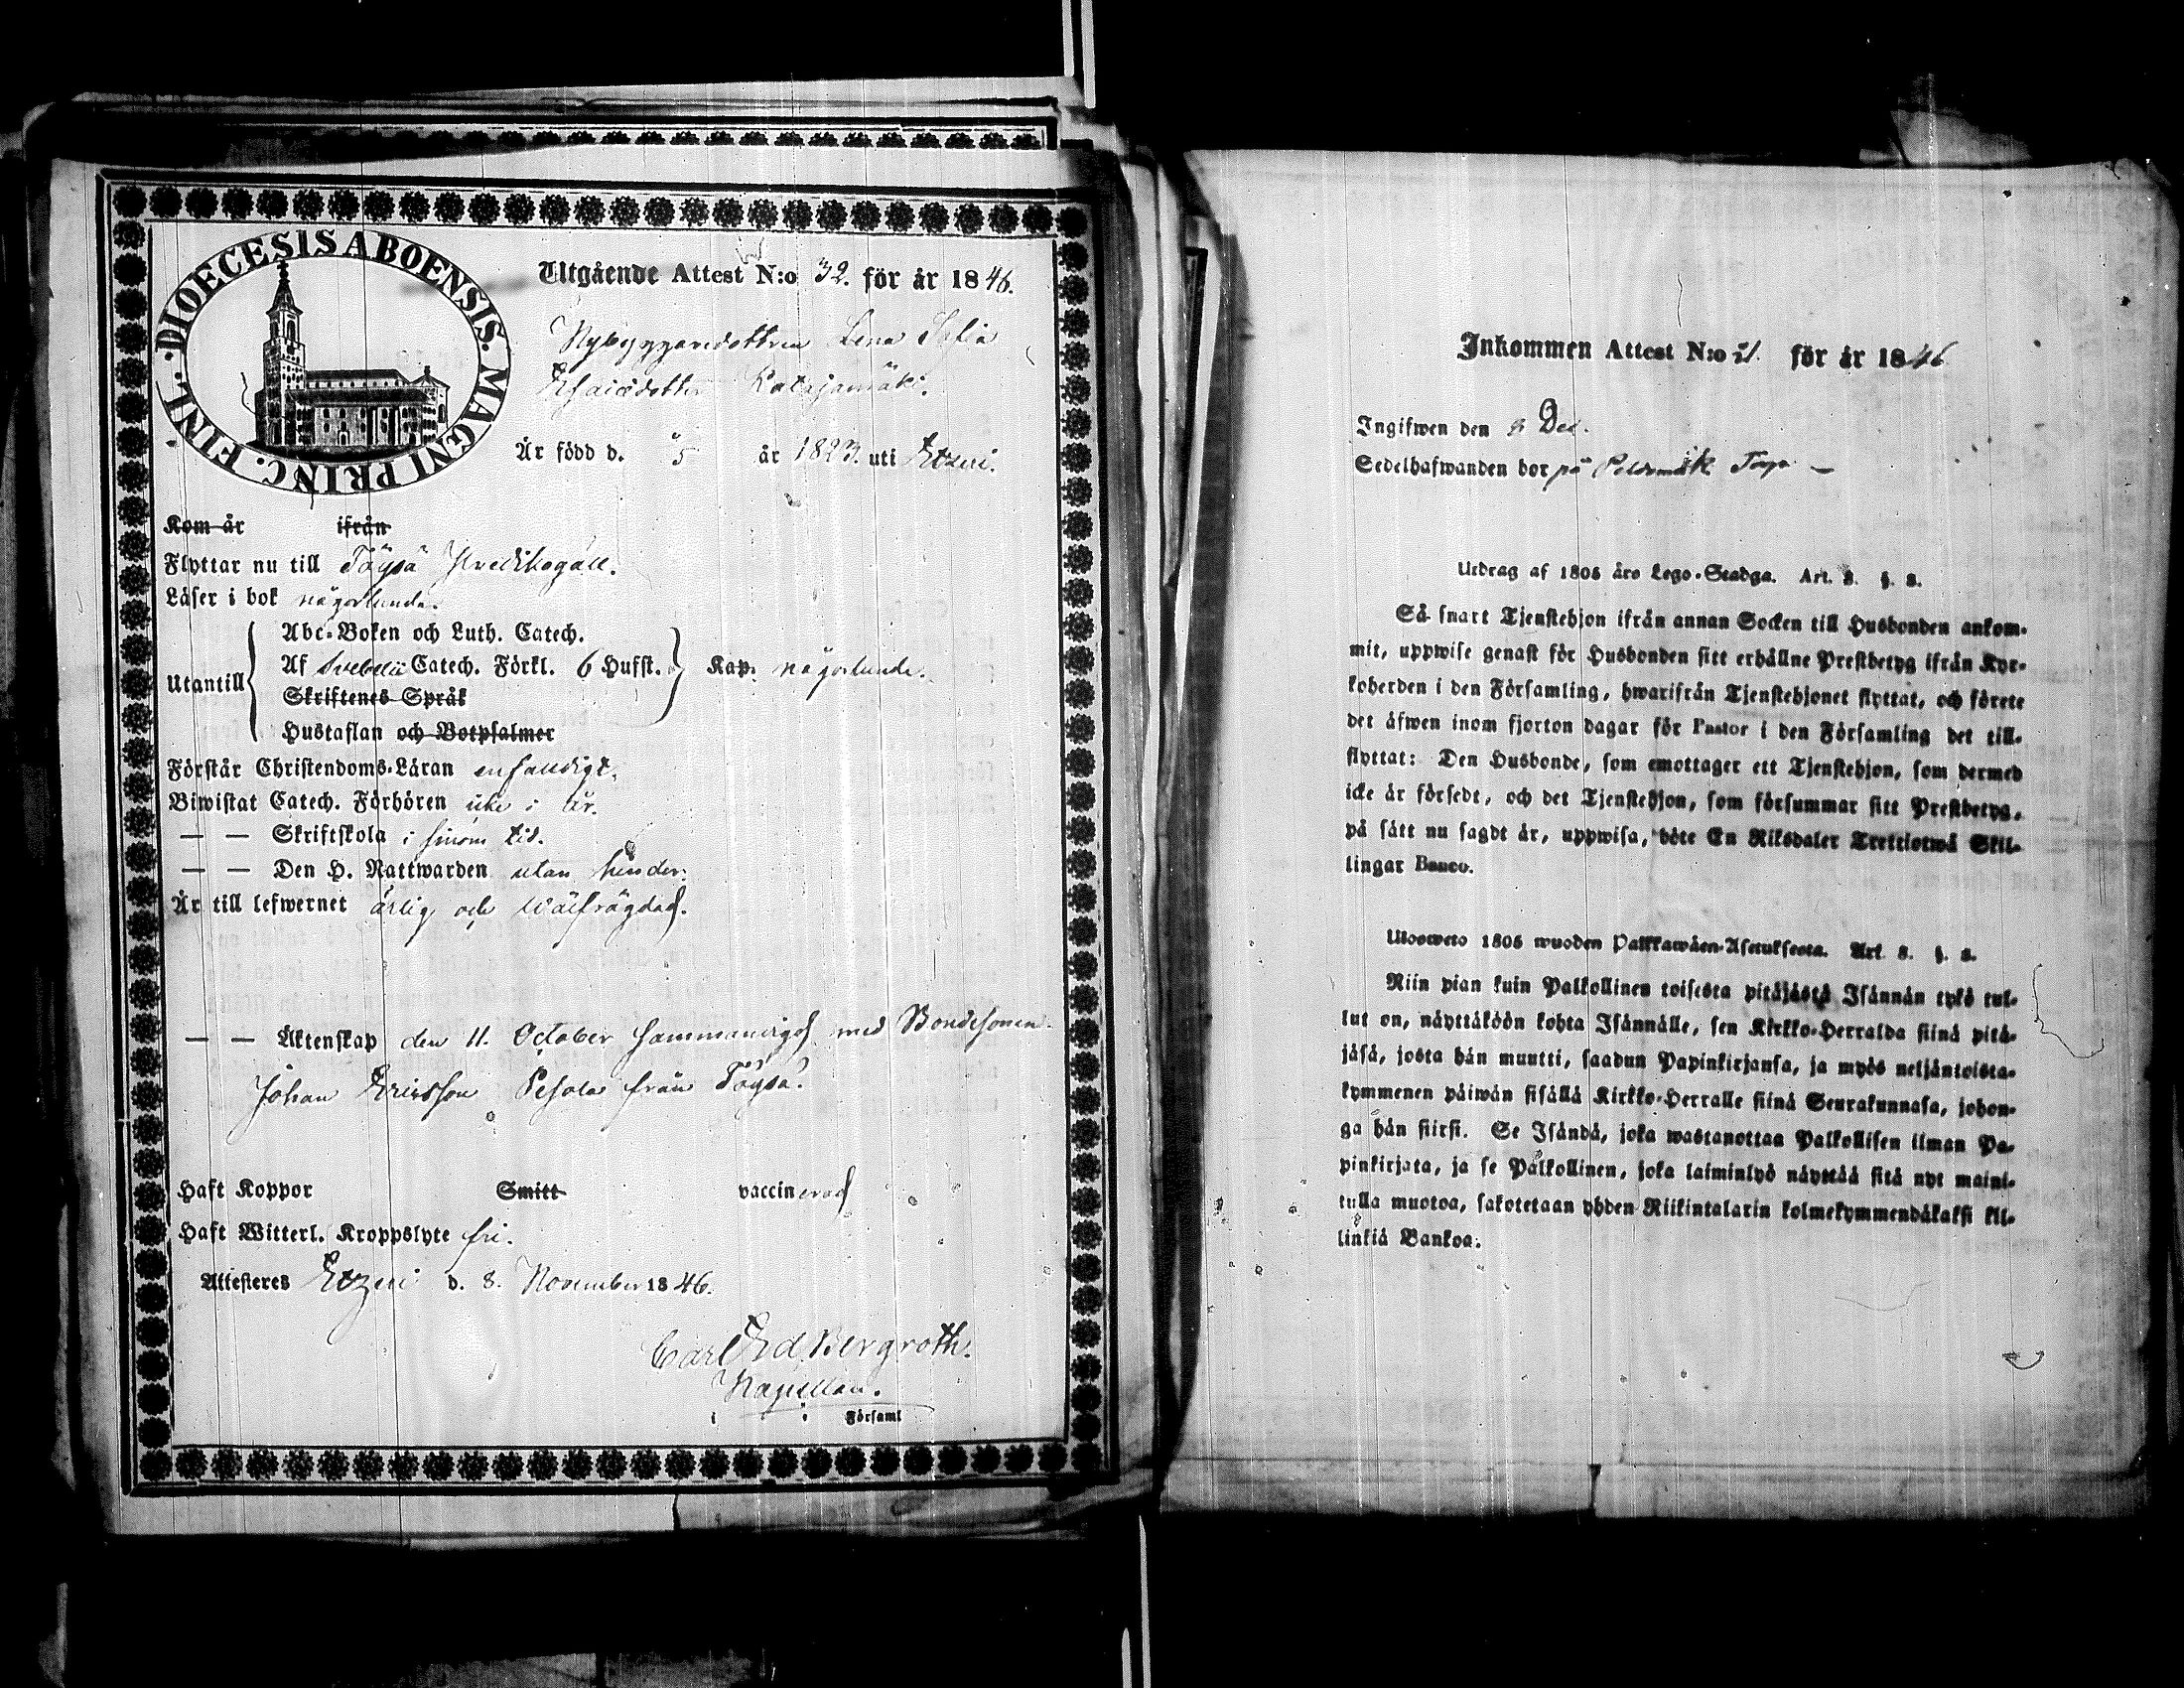 DIOECESIS ABOENSIS. MAGNI PRINC. FINL.
Utgående Attest N:o 32. för år 1846.
Nybyggaredottren Lena Sofia
Esaiædotter Katajamäki.
Är född d. 5 år 1823. uti Etzeri.
Kom år ifrån
Flyttar nu till Töysä
Läser i bok någorlunda.
Utantill
Abc-Boken och Luth. Catech.
Af Svebelii Catech. Förkl. 6 Hufst. Kap. någorlunda.
Skriftenes Språk
Hustaflan och Botpsalmer
Förstår Christendoms-Läran enfaldigt.
Biwistat Catech. Förhören icke i år.
— — Skriftskola i sinom tid.
— — Den H. Nattwarden utan hinder.
Är till lefwernet ärlig och wälfrägdad.
— — Äktenskap den 11. October sammanvigd med Bondesonen
Johan Ericsson Pesola från Töysä.
Haft Koppor Smitt vaccinerad
Haft Witterl. Kroppslyte fri.
Attesteres Etzeri d. 8. November 1846.
Carl Ed. Bergroth.
Kapellan.
i i Församl
Inkommen Attest N:o 21. för år 1846.
Ingifwen den 8 Dec.
Sedelhafwanden bor på
Utdrag af 1805 års Lego-Stadga. Art. 3. §. 8.
Så snart Tjenstehjon ifrån annan Socken till Husbonden ankom-
mit, uppwise genast för Husbonden sitt erhållne Prestbetyg ifrån Kyr-
koherden i den Församling, hwarifrån Tjenstehjonet flyttat, och förete
det äfwen inom fjorton dagar för Pastor i den Församling det till-
flyttat: Den Husbonde, som emottager ett Tjenstehjon, som dermed
icke är försedt, och det Tjenstehjon, som försummar sitt Prestbetyg,
på sätt nu sagdt är, uppwisa, böte En Riksdaler Trettiotwå Skil-
lingar Banco.
Ulosweto 1805 wuoden Palkkawäen-Asetuksesta. Art. 3. §. 8.
Niin pian kuin Palkollinen toisesta pitäjästä Isännän tykö tul-
lut on, näyttäköön kohta Isännälle, sen Kirkko-Herralda siinä pitä-
jäsä, josta hän muutti, saadun Papinkirjansa, ja myös neljäntoista-
kymmenen päiwän sisällä Kirkko-Herralle siinä Seurakunnasa, johon-
ga hän siirsi. Se Isändä, joka wastanottaa Palkollisen ilman Pa-
pinkirjata, ja se Palkollinen, joka laiminlyö näyttää sitä nyt maini-
tulla muotoa, sakotetaan yhden Riikintalarin kolmekymmendäkaksi kil-
linkiä Bankoa.